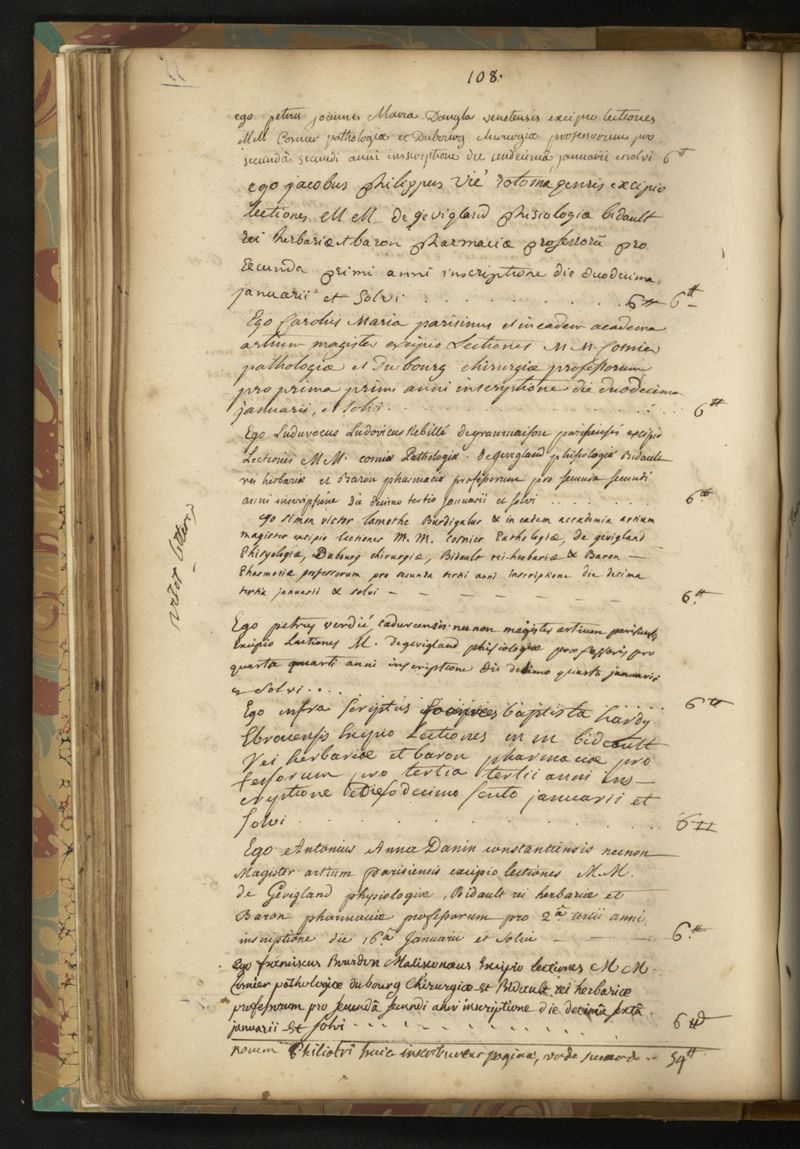 108.
ego petrus joannes Maria Dangla venetensis excipio lectiones
MM Cosnier pathologiæ et Dubourg chirurgiæ professorum pro
secundâ secundi anni inscriptione die undecimâ januarii et solvi 6 tt
ego jacobus philippus vié rotomagensis excipio
lectiones MM de gevigland phisiologiæ bidault
rei herbariæ et baron pharmaciæ professorũ pro
secunda primi anni inscriptione die duodecima
januarii et solvi . . . . . 6 tt 6 tt
Ego Carolus Maria parisinus et in eadem academia
artium magister excipio Lectiones M M. Cosnier
pathologiæ et Dubourg chirurgiæ professorum
pro prima primi anni inscriptione die duodecima
januarii, et solvi . . . . . 6 tt
Ego Ludovicus Rebillé degranmaison parisiensis excipio
Lectiones MM. cosnier Pathologiæ. de gevigland phisiologiæ Bidault
rei herbariæ et Baron pharmaciæ professorum pro secunda secundi
anni inscriptione die decimo tertio Januarii et solvi . . . . . 6 tt
Ego simon victor lamothe Burdigalus & in eadem accademia artium
magister excipio lectiones M. M. Cosnier Pathologiæ, de gevigland
Phisyologiæ, Dubourg chirurgiæ, Bidault rei-herbariæ & Baron —
Pharmaciæ professorum pro secunda tertii anni inscriptione die decima
tertia januarii & solvi — — — — — 6 tt
Ego petrus verdié, cadurcensis necnon magister artium parisiensis
Excipio Lectiones M. degevigland phisiologiæ professoris pro
quarta quarti anni inscriptione die decimo quarto januarii
et solvi . . . . 6 tt
Ego infra scriptus joannes baptista hardy
Ebroicensis Excipio Lectiones m m bideault
rei herbariæ et baron pharmaciæ pro
fessorum pro tertia tertii anni ins—
cryptione die decimo sexto januarii et
solvi . . . . . 6 tt
Ego Antonius Anna Danin constantiensis necnon
Magister artium parisiensis excipio lectiones M M.
de Gévigland physiologiæ, Bidault rei herbariæ et
Baron pharmaciæ professorum pro 2â tertii anni
inscriptione die 16â Januarii et solvi — — — 6 tt
Ego franciscus Bourdon Matisconæus Excipio lectiones M M
Cosnier pathologiæ dubourg chirurgiæ et Bidault rei herbariæ
professorum pro secundâ secundi anni inscriptione die decimâ sextâ
januarii et solvi . . . . . 6 tt
novem Philiatri huic inscribuntur paginæ, unde summa — 54 tt